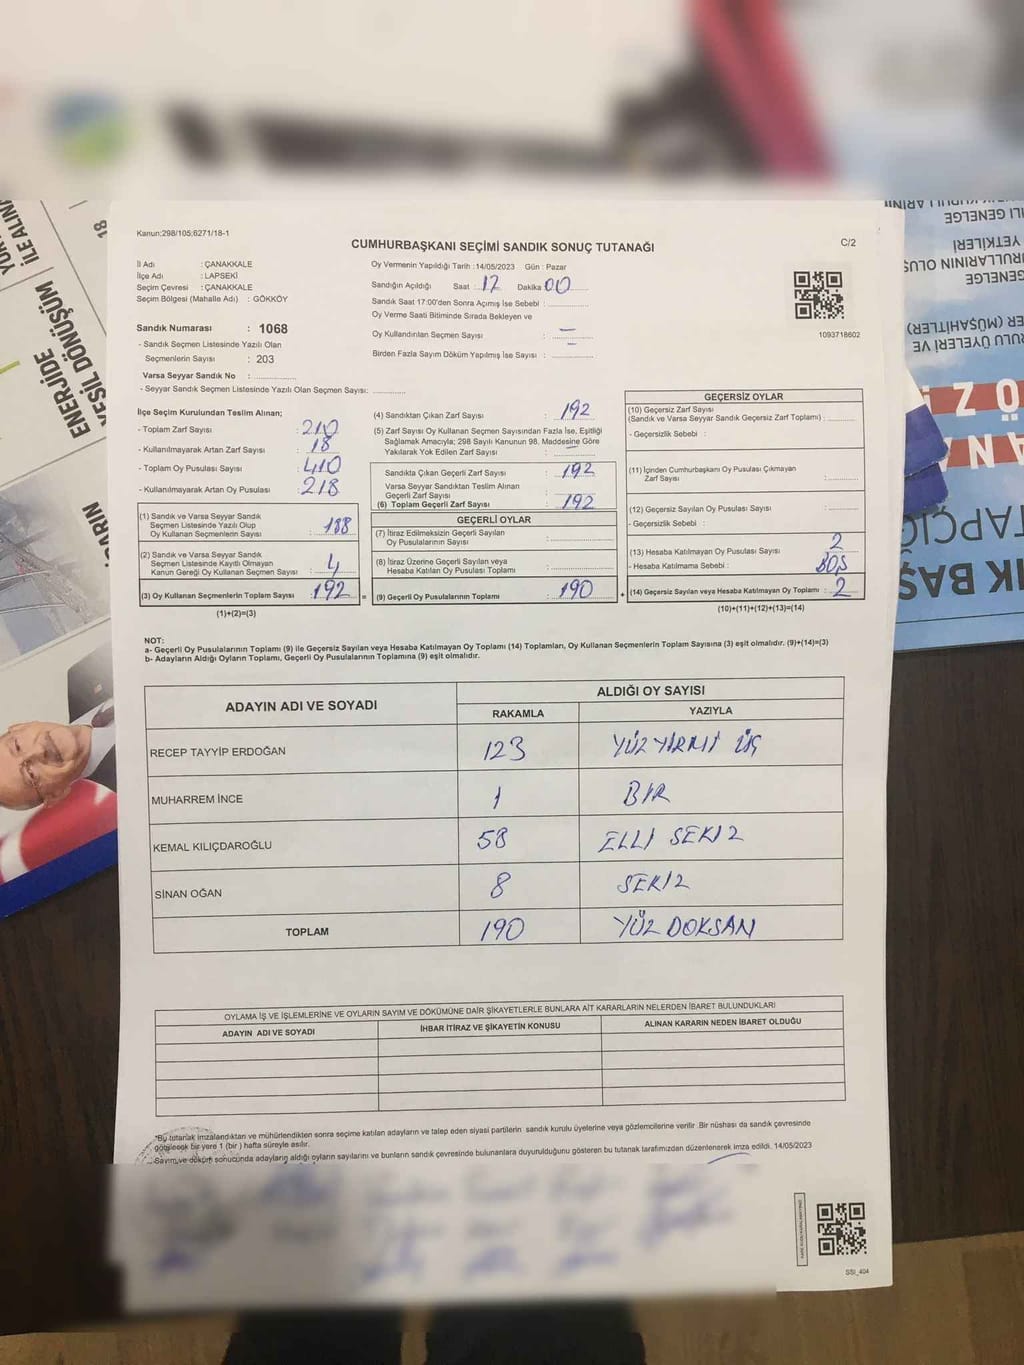 Kanun;298/105;6271/18-1
CUMHURBAŞKANI SEÇİMİ SANDIK SONUÇ TUTANAĞI
C/2
İl Adı : ÇANAKKALE
İlçe Adı : LAPSEKİ
Seçim Çevresi : ÇANAKKALE
Seçim Bölgesi (Mahalle Adı) : GÖKKÖY
Sandık Numarası : 1068
- Sandık Seçmen Listesinde Yazılı Olan
Seçmenlerin Sayısı : 203
Varsa Seyyar Sandık No : ............
- Seyyar Sandık Seçmen Listesinde Yazılı Olan Seçmen Sayısı: ............
Oy Vermenin Yapıldığı Tarih : 14/05/2023 Gün : Pazar
Sandığın Açıldığı Saat : 17 Dakika 00
Sandık Saat 17:00'den Sonra Açımış İse Sebebi : ............
Oy Verme Saati Bitiminde Sırada Bekleyen ve
Oy Kullandırılan Seçmen Sayısı : —
Birden Fazla Sayım Döküm Yapılmış İse Sayısı : —
1093718602
İlçe Seçim Kurulundan Teslim Alınan;
- Toplam Zarf Sayısı : 210
- Kullanılmayarak Artan Zarf Sayısı : 18
- Toplam Oy Pusulası Sayısı : 410
- Kullanılmayarak Artan Oy Pusulası : 218
(1) Sandık ve Varsa Seyyar Sandık
Seçmen Listesinde Yazılı Olup
Oy Kullanan Seçmenlerin Sayısı : 188
(2) Sandık ve Varsa Seyyar Sandık
Seçmen Listesinde Kayıtlı Olmayan
Kanun Gereği Oy Kullanan Seçmen Sayısı : 4
(3) Oy Kullanan Seçmenlerin Toplam Sayısı : 192 =
(1)+(2)=(3)
(4) Sandıktan Çıkan Zarf Sayısı : 192
(5) Zarf Sayısı Oy Kullanan Seçmen Sayısından Fazla İse, Eşitliği
Sağlamak Amacıyla; 298 Sayılı Kanunun 98. Maddesine Göre
Yakılarak Yok Edilen Zarf Sayısı : —
Sandıkta Çıkan Geçerli Zarf Sayısı : 192
Varsa Seyyar Sandıktan Teslim Alınan
Geçerli Zarf Sayısı :
(6) Toplam Geçerli Zarf Sayısı : 192
GEÇERLİ OYLAR
(7) İtiraz Edilmeksizin Geçerli Sayılan
Oy Pusulalarının Sayısı : ............
(8) İtiraz Üzerine Geçerli Sayılan veya
Hesaba Katılan Oy Pusulası Toplamı : ............
(9) Geçerli Oy Pusulalarının Toplamı : 190 +
GEÇERSİZ OYLAR
(10) Geçersiz Zarf Sayısı
(Sandık ve Varsa Seyyar Sandık Geçersiz Zarf Toplamı) : ............
- Geçersizlik Sebebi :
(11) İçinden Cumhurbaşkanı Oy Pusulası Çıkmayan
Zarf Sayısı : ............
(12) Geçersiz Sayılan Oy Pusulası Sayısı : ............
- Geçersizlik Sebebi :
(13) Hesaba Katılmayan Oy Pusulası Sayısı : 2
- Hesaba Katılmama Sebebi : BOŞ
(14) Geçersiz Sayılan veya Hesaba Katılmayan Oy Toplamı : 2
(10)+(11)+(12)+(13)=(14)
NOT:
a- Geçerli Oy Pusulalarının Toplamı (9) ile Geçersiz Sayılan veya Hesaba Katılmayan Oy Toplamı (14) Toplamları, Oy Kullanan Seçmenlerin Toplam Sayısına (3) eşit olmalıdır. (9)+(14)=(3)
b- Adayların Aldığı Oyların Toplamı, Geçerli Oy Pusulalarının Toplamına (9) eşit olmalıdır.
ADAYIN ADI VE SOYADI
ALDIĞI OY SAYISI
RAKAMLA YAZIYLA
RECEP TAYYİP ERDOĞAN 123 YÜZ YİRMİ ÜÇ
MUHARREM İNCE 1 BİR
KEMAL KILIÇDAROĞLU 58 ELLİ SEKİZ
SİNAN OĞAN 8 SEKİZ
TOPLAM 190 YÜZ DOKSAN
OYLAMA İŞ VE İŞLEMLERİNE VE OYLARIN SAYIM VE DÖKÜMÜNE DAİR ŞİKAYETLERLE BUNLARA AİT KARARLARIN NELERDEN İBARET BULUNDUKLARI
ADAYIN ADI VE SOYADI İHBAR İTİRAZ VE ŞİKAYETİN KONUSU ALINAN KARARIN NEDEN İBARET OLDUĞU
*Bu tutanak imzalandıktan ve mühürlendikten sonra seçime katılan adayların ve talep eden siyasi partilerin sandık kurulu üyelerine veya gözlemcilerine verilir .Bir nüshası da sandık çevresinde
görülecek bir yere 1 (bir ) hafta süreyle asılır.
Sayım ve döküm sonucunda adayların aldığı oyların sayılarını ve bunların sandık çevresinde bulunanlara duyurulduğunu gösteren bu tutanak tarafımızdan düzenlenerek imza edildi. 14/05/2023
SSI_404
ENERJİDE
YEŞİL DÖNÜŞÜM
İLE ALINA
18
GENELGE
YETKİLERİ
GENELGE
(MÜŞAHİTLER)